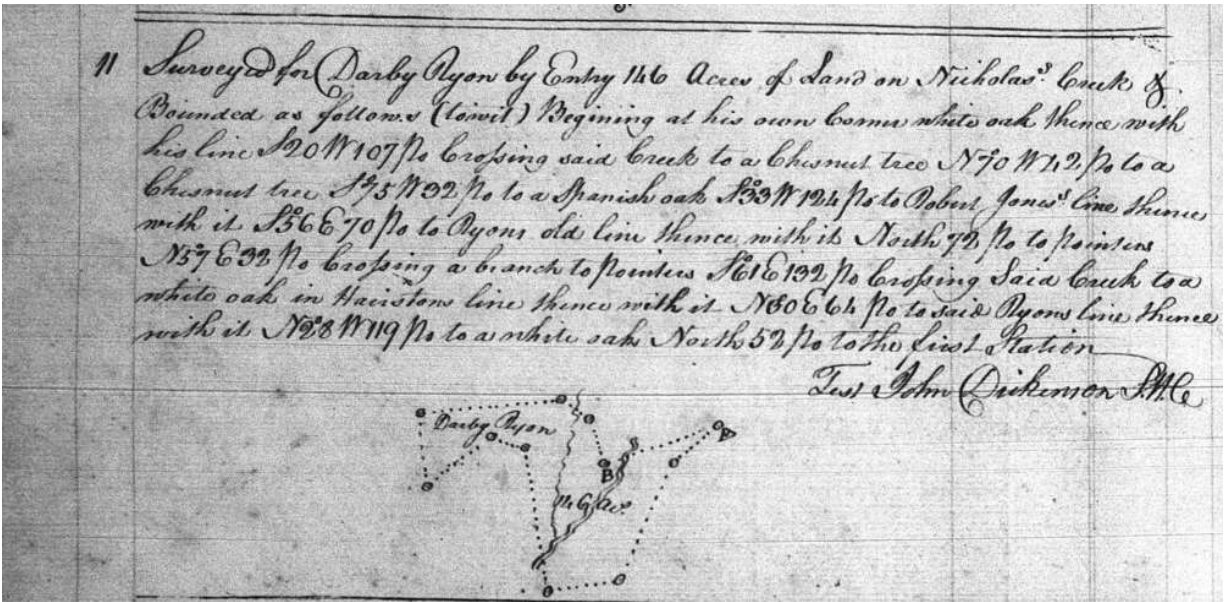 11 Survey'd for Darby Ryon by Entry 146 Acres of Land on Nicholas's Creek &
Bounded as follows (towit) Begining at his own Corner white oak thence with
his line S20°W 107 Po Crossing said Creek to a Chesnut tree N70°W 42 Po to a
Chesnut tree S75°W 32 Po to a Spanish oak S33°W 124 Po to Robert Jones's line thence
with it S56°E 70 Po to Ryons old line thence with it North 72 Po to Pointers
N57°E 32 Po Crossing a branch to Pointers S61°E 132 Po Crossing Said Creek to a
white oak in Hairstons line thence with it N80E 64 Po to said Ryons line thence
with it N28°W 119 Po to a white oak North 52 Po to the first Station
Test John Dickenson S.H.C
Darby Ryon
B
146 Acs.